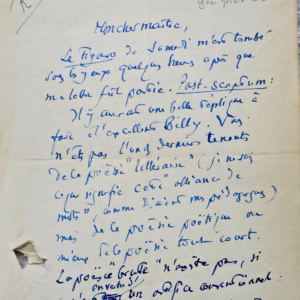 Mon cher maître,
Le Figaro de Samedi m'est tombé
sous les yeux quelques heures après que
ma lettre fut partie. Post-scriptum :
Il y aurait une belle réplique à
faire à l'excellent Billy. Vous
n'êtes pas l'un des derniers tenants
de la poésie "littéraire" (je ne sais
ce que signifie cette "alliance de
mots", comme disaient mes pédagogues)
mais de la poésie poétique ou
mieux de la poésie tout court.
La poésie brute n'existe pas, si
un artifice conventionnel